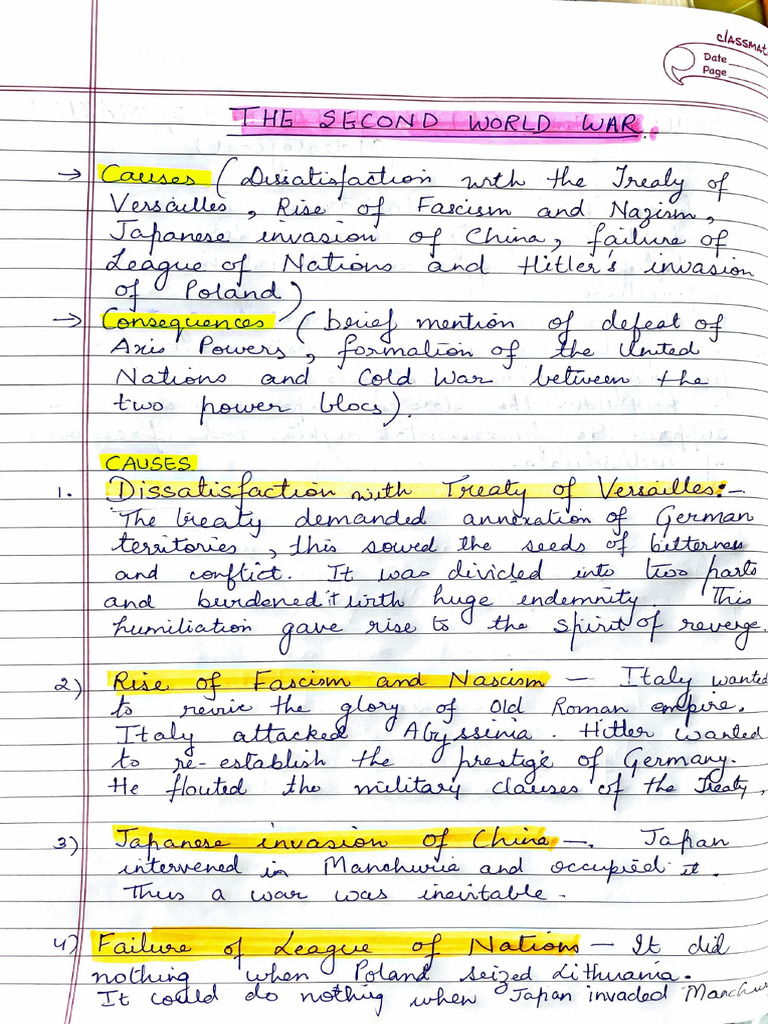 classmat
Date
Page
THE SECOND WORLD WAR.
→ Causes (Dissatisfaction with the Treaty of
Versailles, Rise of Fascism and Nazism,
Japanese invasion of China, failure of
League of Nations and Hitler's invasion
of Poland)
→ Consequences (brief mention of defeat of
Axis Powers, formation of the United
Nations and Cold War between the
two power blocs).
CAUSES
1. Dissatisfaction with Treaty of Versailles:-
The treaty demanded annexation of German
territories, this sowed the seeds of bitterness
and conflict. It was divided into two parts
and burdened it with huge indemnity. This
humiliation gave rise to the spirit of revenge.
2) Rise of Fascism and Nascism — Italy wanted
to revive the glory of old Roman empire.
Italy attacked Abyssinia. Hitler wanted
to re-establish the prestige of Germany.
He flouted the military clauses of the Treaty.
3) Japanese invasion of China —. Japan
intervened in Manchuria and occupied it.
Thus a war was inevitable.
4) Failure of League of Nations — It did
nothing when Poland seized Lithuania.
It could do nothing when Japan invaded Manchu